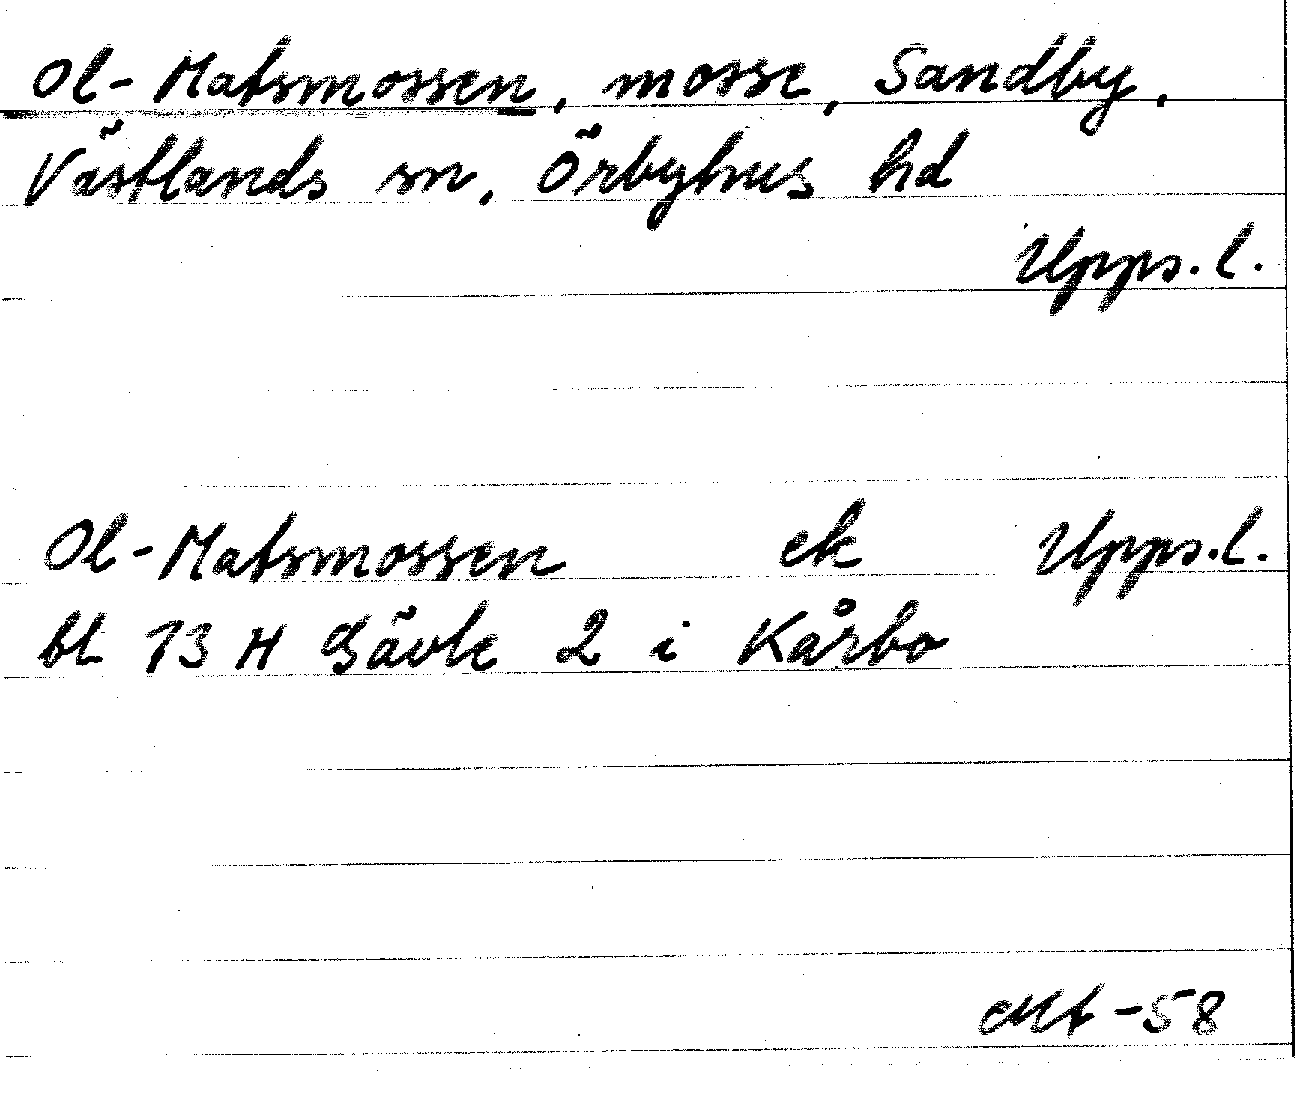 Ol-Matsmossen, mosse, Sandby,
Västlands sn, Örbyhus hd
Upps. l.
Ol-Matsmossen ek Upps. l.
bl 13 H Gävle 2 i Kårbo
-58